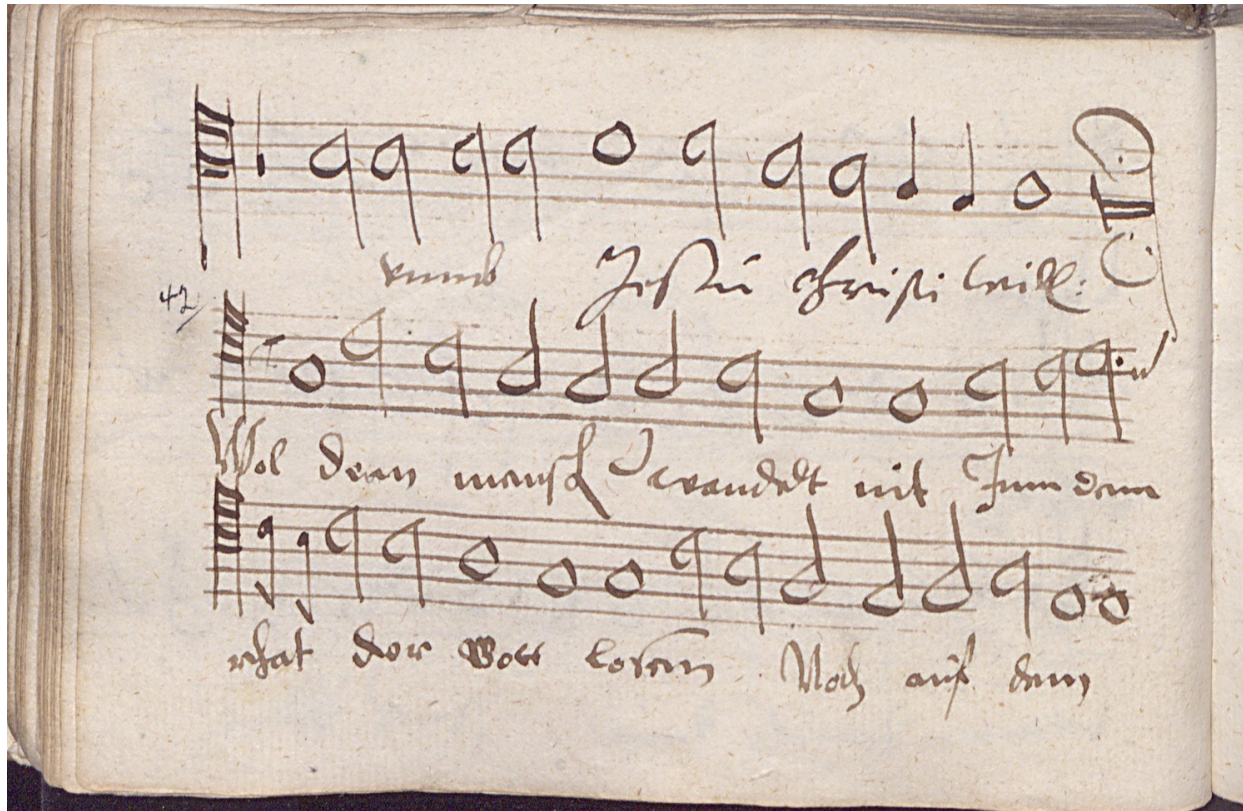 vmmb Jessu christi will:
42
Wol dem mensch wandelt nit Inn dem
rhat der Gott losenn Noch auf dem